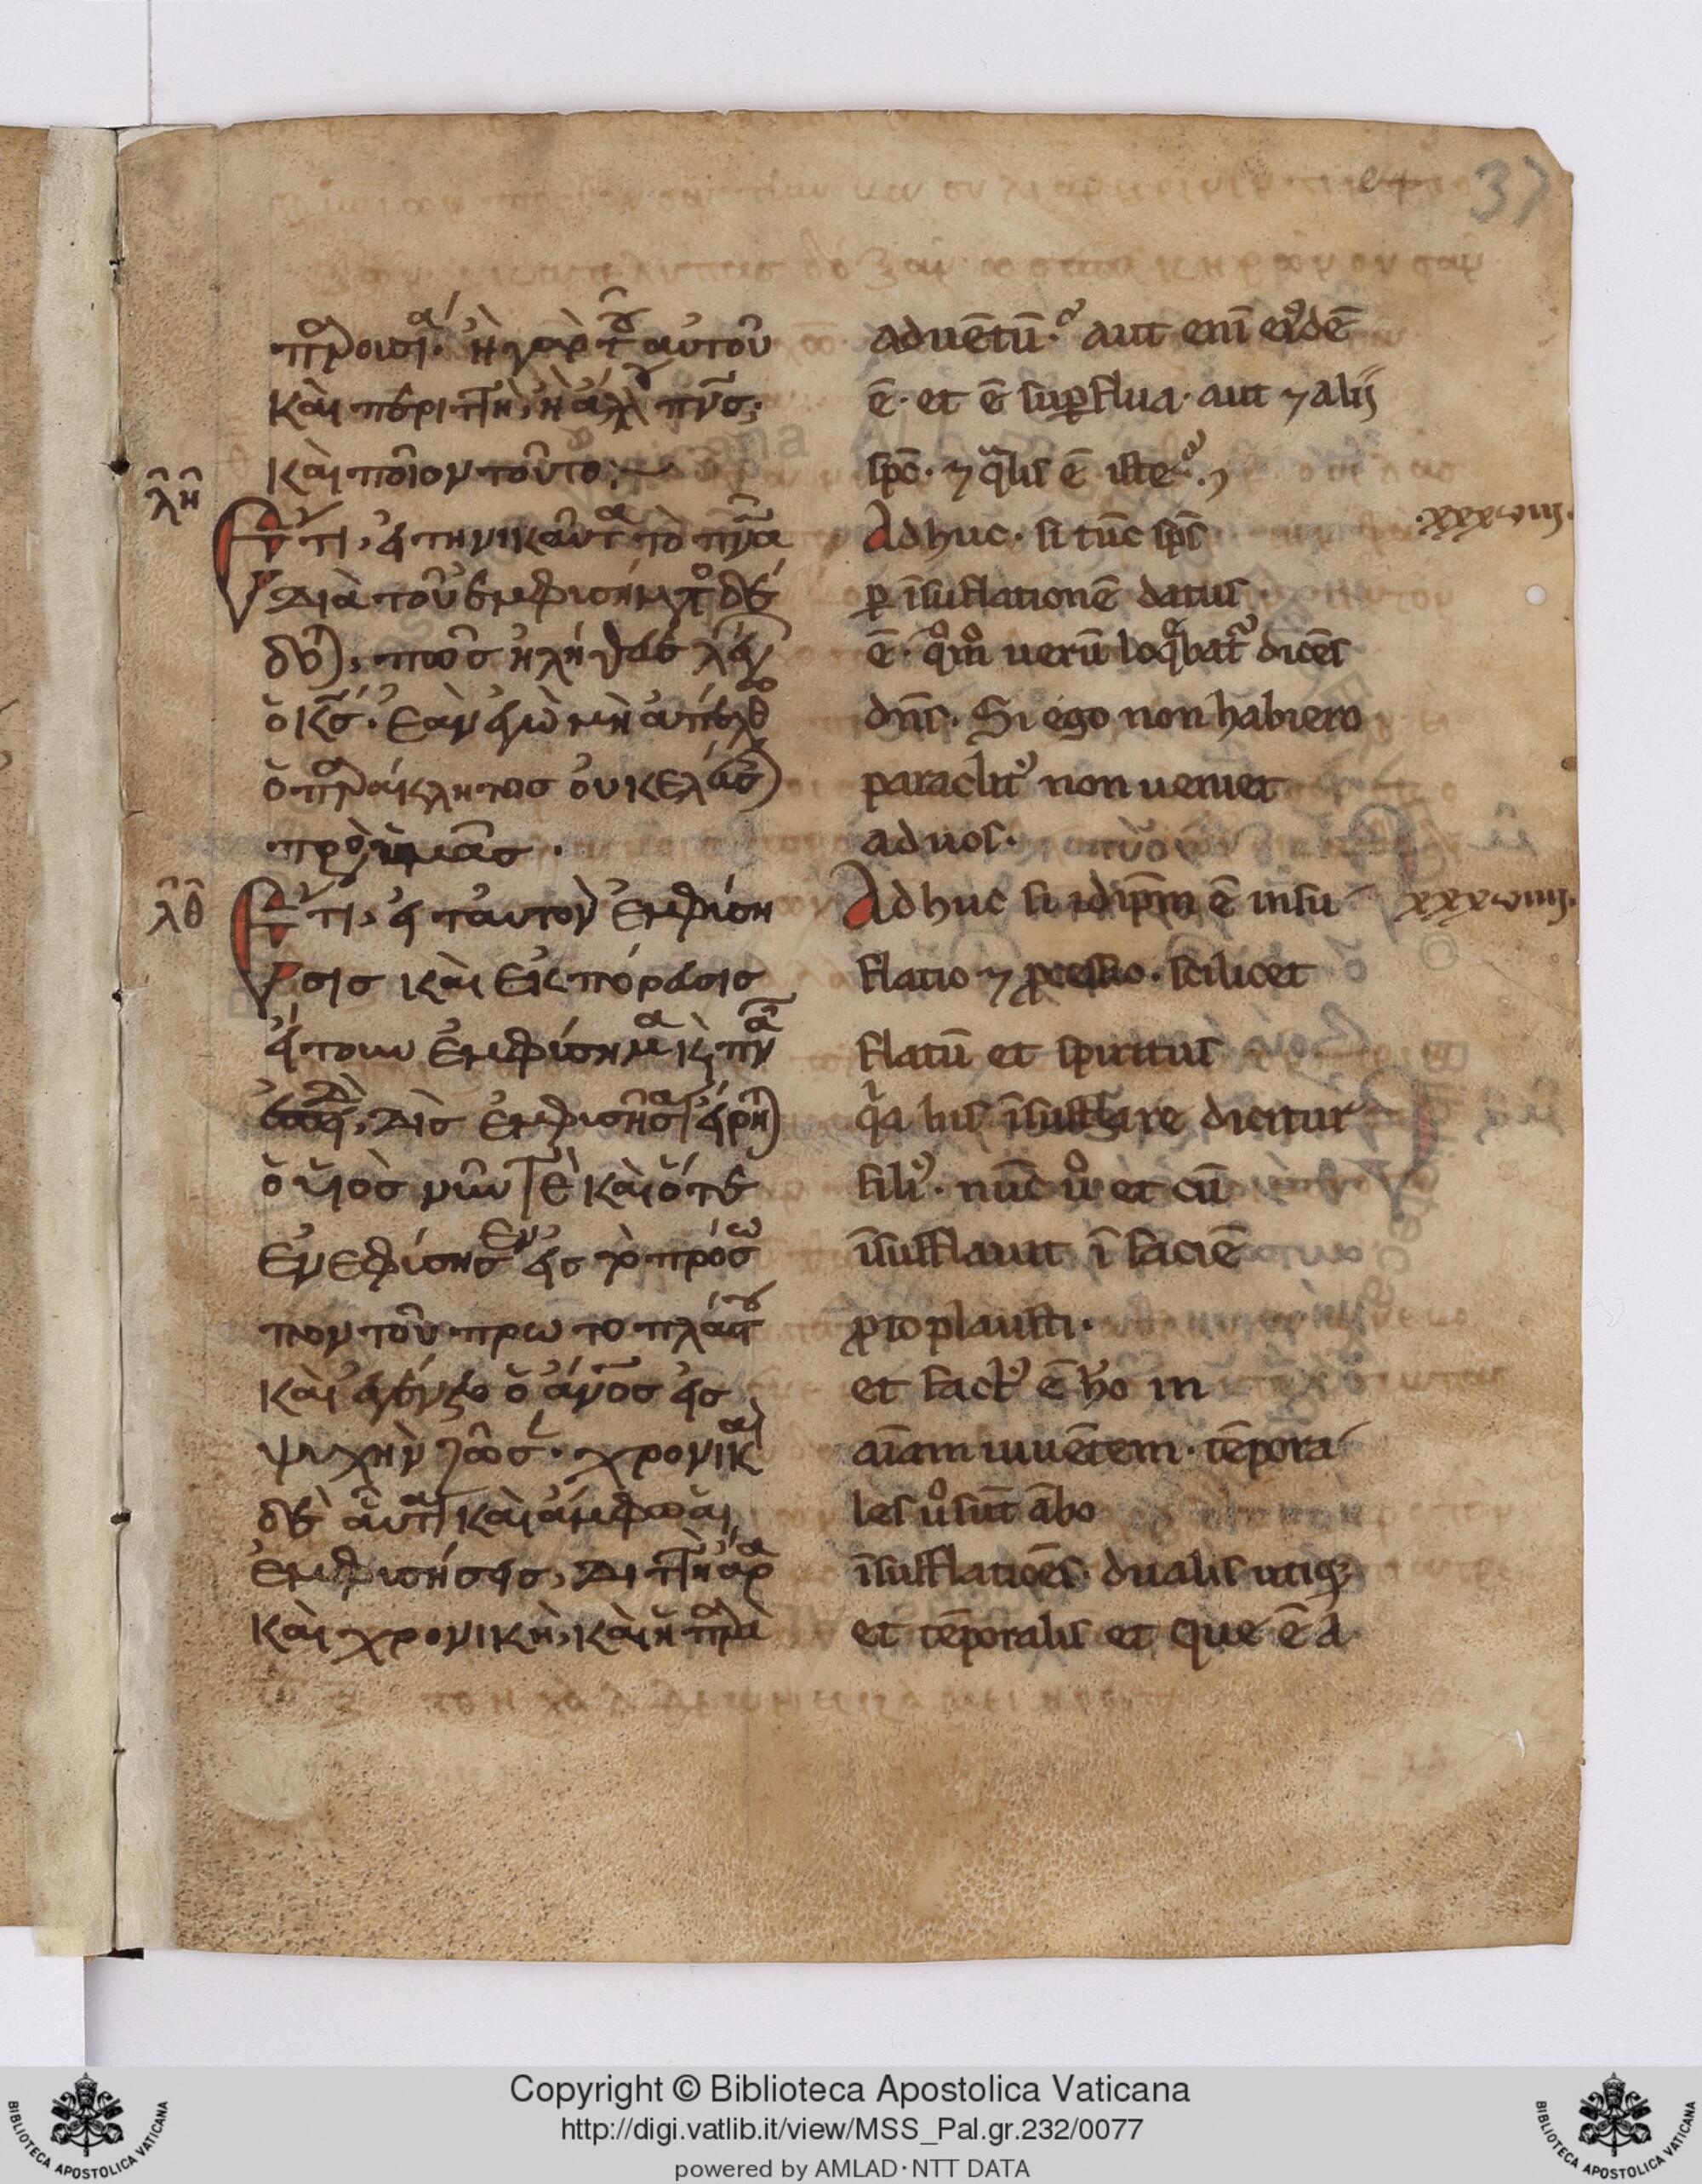 37
παρουσία· ἢ γὰρ τοῦ αὐτοῦ
καὶ περιττὴ, ἢ ἄλλου πνς;
καὶ ποῖον τοῦτο;
λη
Ἔτι, εἰ τηνικαῦτα τὸ πνα
διὰ τοῦ ἐμφυσήματος δέ
πῶς ἠλήθευε λέγων
ὁ κς· ἐὰν ἐγὼ μὴ ἀπέλθω
ὁ παράκλητος οὐκ ἐλεύσεται
πρὸς ὑμᾶς·
λθ
Ἔτι, εἰ ταυτὸν ἐμφύση
σις καὶ ἐκπόρευσις
ἤτοι ἐμφύσημα καὶ πνα
δὶς ἐμφυσῆσαι εἴρηται
ὁ υἱὸς νῦν τε καὶ ὅτε
ἐνεφύσησεν εἰς τὸ πρόσω
πον τοῦ πρωτοπλάστου
καὶ ἐγένετο ὁ ἄνος εἰς
ψυχὴν ζῶσαν· χρονικαὶ
δὲ αὗται καὶ ἄμφω αἱ
ἐμφυσήσεις, διττὴ ἄρα
καὶ χρονικὴ, καὶ ἡ παρὰ
aduētū· aut eni eiꝰdē
ē· et ē suꝑflua· aut ⁊ alij
spc̄· ⁊ qͣlis ē iste·
Adhuc· si tūc spc̄ ·xxxviij·
ꝑ īsuflationē datus
ē· qͦmͦ uerū loqͤbat dicēs
dn̄s· Si ego non habiero
paraclitꝰ non ueniet
ad uos·
Adhuc si idip̄m ē insu xxxviiij·
flatio ⁊ ꝓcessio· scilicet
flatū et spiritus
qͣ bis īsufflare dicitur
filiꝰ· nūc uͦ et cū
īsufflauit ī faciē
ꝓtoplausti·
et factꝰ ē hͦo in
aīam uiuētem· tēpora
les uͦ sūt ābo
īsufflatiōēs· dualis utiqꝫ
et tēporalis et que ē a
Copyright © Biblioteca Apostolica Vaticana
http://digi.vatlib.it/view/MSS_Pal.gr.232/0077
powered by AMLAD·NTT DATA
BIBLIOTECA APOSTOLICA VATICANA
BIBLIOTECA APOSTOLICA VATICANA